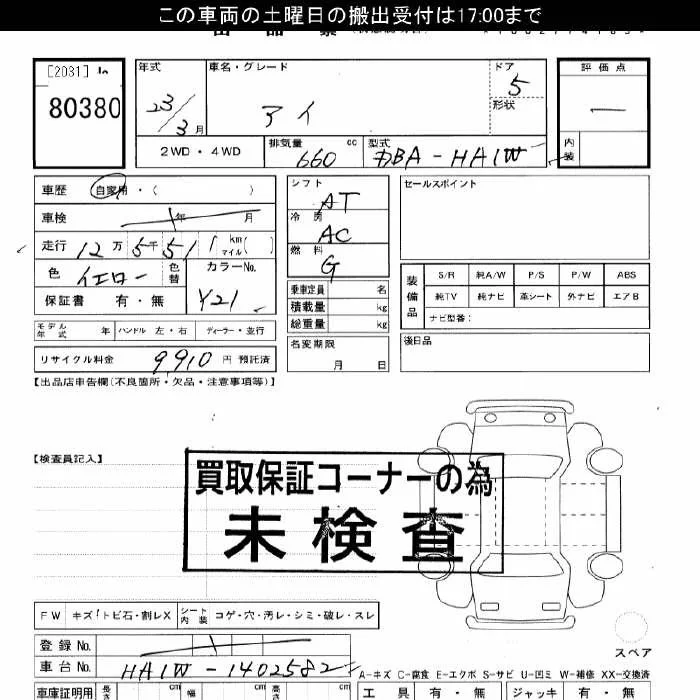 この車両の土曜日の搬出受付は17:00まで
[2031]
80380
年式 車名・グレード ドア 評価点
23/3月 アイ 5
形状
2WD・4WD 排気量 660 cc 型式 DBA-HA1W 内装
車歴 自家用・( )
車検 年 月
走行 12万5千51 km マイル( )
色 イエロー 色替 カラーNo.
保証書 有・無 Y21
シフト AT
冷房 AC
燃料 G
乗車定員 名
積載量 kg
総重量 kg
名変期限
月 日
セールスポイント
装備品 S/R 純A/W P/S P/W ABS
純TV 純ナビ 革シート 外ナビ エアB
ナビ型番:
後日品
モデル年式 年 ハンドル 左・右 ディーラー・並行
リサイクル料金 9910 円 預託済
【出品店申告欄(不良箇所・欠品・注意事項等)】
【検査員記入】
買取保証コーナーの為
未検査
FW キズ/トビ石・割レX シート内装 コゲ・穴・汚レ・シミ・破レ・スレ
スペア
登録No.
車台No. HA1W-1402582
A-キズ C-腐食 E-エクボ S-サビ U-凹ミ W-補修 XX-交換済
車庫証明用 長さ cm 幅 cm 高さ cm 工具 有・無 ジャッキ 有・無